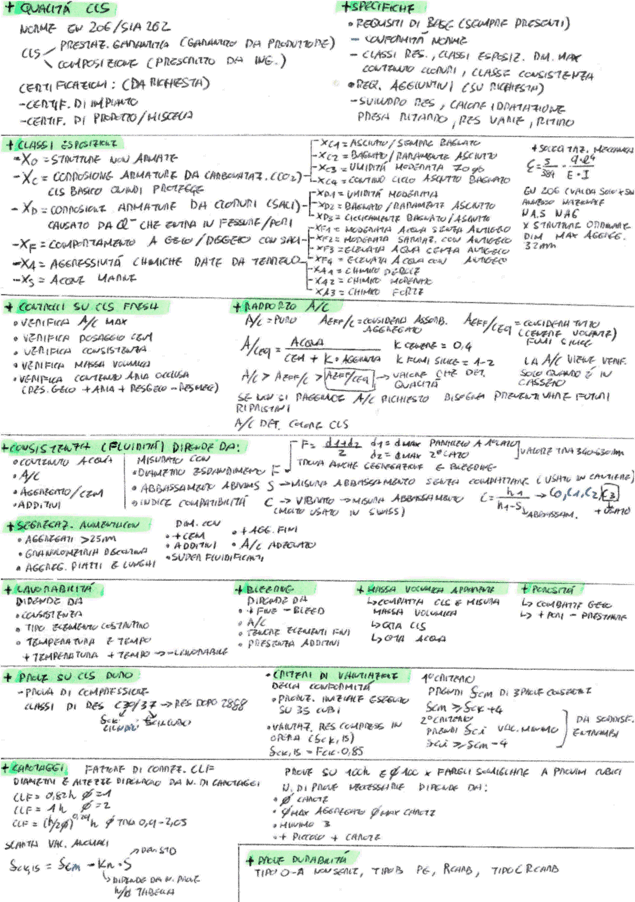 + QUALITÀ CLS
NORME EN 206/SIA 262
CLS PRESTAZ. GARANTITA (GARANTITO DA PRODUTTORE)
COMPOSIZIONE (PRESCRITTO DA ING.)
CERTIFICAZIONI: (DA RICHIESTA)
- CERTIF. DI IMPIANTO
- CERTIF. DI PRODOTTO/MISCELA
+ SPECIFICHE
• REQUISITI DI BASE (SEMPRE PRESENTI)
- CONFORMITÀ NORME
- CLASSI RES., CLASSI ESPOSIZ. DIM. MAX
CONTENUTO CLORURI, CLASSE CONSISTENZA
• REQ. AGGIUNTIVI (SU RICHIESTA)
- SVILUPPO RES, CALORE IDRATAZIONE
PRESA RITARDO, RES VARIE, RITIRO
+ CLASSI ESPOSIZIONE
- X0 = STRUTTURE NON ARMATE
- XC = CORROSIONE ARMATURE DA CARBONATAZ. (CO2)
CLS BASICO QUINDI PROTEGGE
- XD = CORROSIONE ARMATURE DA CLORURI (SALI)
CAUSATO DA CL- CHE ENTRA IN FESSURE/PORI
- XF = COMPORTAMENTO A GELO/DISGELO CON SALI
- XA = AGGRESSIVITÀ CHIMICHE DATE DA TERRENO
- XS = ACQUE MARINE
XC1 = ASCIUTTO/SEMPRE BAGNATO
XC2 = BAGNATO/RARAMENTE ASCIUTTO
XC3 = UMIDITÀ MODERATA
XC4 = CONTINUO CICLO ASCIUTTO BAGNATO
XD1 = UMIDITÀ MODERATA
XD2 = BAGNATO/RARAMENTE ASCIUTTO
XD3 = CICLICAMENTE BAGNATO/ASCIUTTO
XF1 = MODERATA ACQUA SENZA ANTIGELO
XF2 = MODERATA SATURAZ. CON ANTIGELO
XF3 = ELEVATA ACQUA SENZA ANTIGELO
XF4 = ELEVATA ACQUA CON ANTIGELO
XA1 = CHIMICO DEBOLE
XA2 = CHIMICO MODERATO
XA3 = CHIMICO FORTE
EN 206
ANNESSO NAZIONALE
X STRUTTURE ORDINARIE
DIM MAX AGGREG.
32mm
+ CONTROLLI SU CLS FRESCO
• VERIFICA A/C MAX
• VERIFICA DOSAGGIO CEM
• VERIFICA CONSISTENZA
• VERIFICA MASSA VOLUMICA
• VERIFICA CONTENUTO ARIA OCCLUSA
(RES. GELO → +ARIA = +RESGELO - RESMECC)
+ RAPPORTO A/C
A/C = PURO AEFF/C = CONSIDERO ASSORB.
AGGREGATO
AEFF/CEQ = CONSIDERA TUTTO
(CENERE VOLANTE)
FUMI SILICE
A/CEQ = ACQUA
CEM + K · AGGIUNTA
K CENERE = 0,4
K FUMI SILICE = 1-2
A/C > AEFF/C > AEFF/CEQ → VALORE CHE DET.
QUALITÀ
LA A/C VIENE VERIF.
SOLO QUANDO È IN
CASSERO
SE NON SI RAGGIUNGE A/C RICHIESTO BISOGNA PREVENTIVARE FUTURI
RIPRISTINI
A/C DET. COLORE CLS
+ CONSISTENZA (FLUIDITÀ) DIPENDE DA:
• CONTENUTO ACQUA
• A/C
• AGGREGATO/CEM
• ADDITIVI
MISURATO CON
• DIAMETRO ESPANDIMENTO F
F = d1+d2
2
d1 = dMAX PARALLELO A 1° LATO
d2 = dMAX 2° LATO
TROVA ANCHE SEGREGAZIONE E BLEEDING
• ABBASSAMENTO ABRAMS S → MISURA ABBASSAMENTO SENZA COMPATTARE (USATO IN CANTIERE)
• INDICE COMPATTABILITÀ C → VIBRATO → MISURA ABBASSAMENTO
(MOLTO USATO IN SWISS)
C = h1
h1-S
→ C0, C1, C2, C3
ABBASSAM. + USATO
+ SEGREGAZ. AUMENTA CON
• AGGREGATI > 25mm
• GRANULOMETRIA DISCONTINUA
• AGGREG. PIATTI E LUNGHI
DIM. CON
• + CEM
• ADDITIVI
• SUPER FLUIDIFICANTI
• + AGG. FINI
• A/C ADEGUATO
+ LAVORABILITÀ
DIPENDE DA
• CONSISTENZA
• TIPO ELEMENTO COSTRUTTIVO
• TEMPERATURA E TEMPO
+ TEMPERATURA + TEMPO → - LAVORABILE
+ BLEEDING
DIPENDE DA
• + FINE - BLEED
• A/C
• TENORE ELEMENTI FINI
• PRESENZA ADDITIVI
+ MASSA VOLUMICA APPARENTE
↳ COMPATTA CLS E MISURA
MASSA VOLUMICA
↳ QTÀ CLS
↳ QTÀ ACQUA
+ POROSITÀ
↳ COMBATTE GELO
↳ + PORI - PRESTANTE
+ PROVE SU CLS DURO
- PROVA DI COMPRESSIONE
CLASSI DI RES C30/37 → RES DOPO 28GG
fck CILINDRO fck CUBO
• CRITERI DI VALUTAZIONE
DELLA CONFORMITÀ
• PRODUZ. INIZIALE ESEGUITO
SU 35 CUBI
• VALUTAZ. RES COMPRESS IN
OPERA (fck,is)
fck,is = fck · 0,85
1° CRITERIO
PRENDI fcm DI 3 PROVE CONSECUTIVE
fcm ≥ fck + 4
2° CRITERIO
PRENDI fci VAL. MINIMO
fci ≥ fcm - 4
DA SODDISF.
ENTRAMBI
+ CAROTAGGI FATTORE DI CORREZ. CLF
DIAMETRI E ALTEZZE DIPENDONO DA N. DI CAROTAGGI
CLF = 0,82h ∅ = 1
CLF = 1h ∅ = 2
SCARTA VAL. ANOMALI
fck,is = fcm - Kn · S
DEV. STD
DIPENDE DA N. PROVE
TABELLA
PROVE SU 100h E ∅100 X FARGLI SOMIGLIARE A PROVINI CUBICI
N. DI PROVE NECESSARIE DIPENDE DA:
• ∅ CAROTE
• ∅MAX AGGREGATO ∅MAX CAROTE
• MINIMO 3
• + PICCOLO + CAROTE
+ PROVE DURABILITÀ